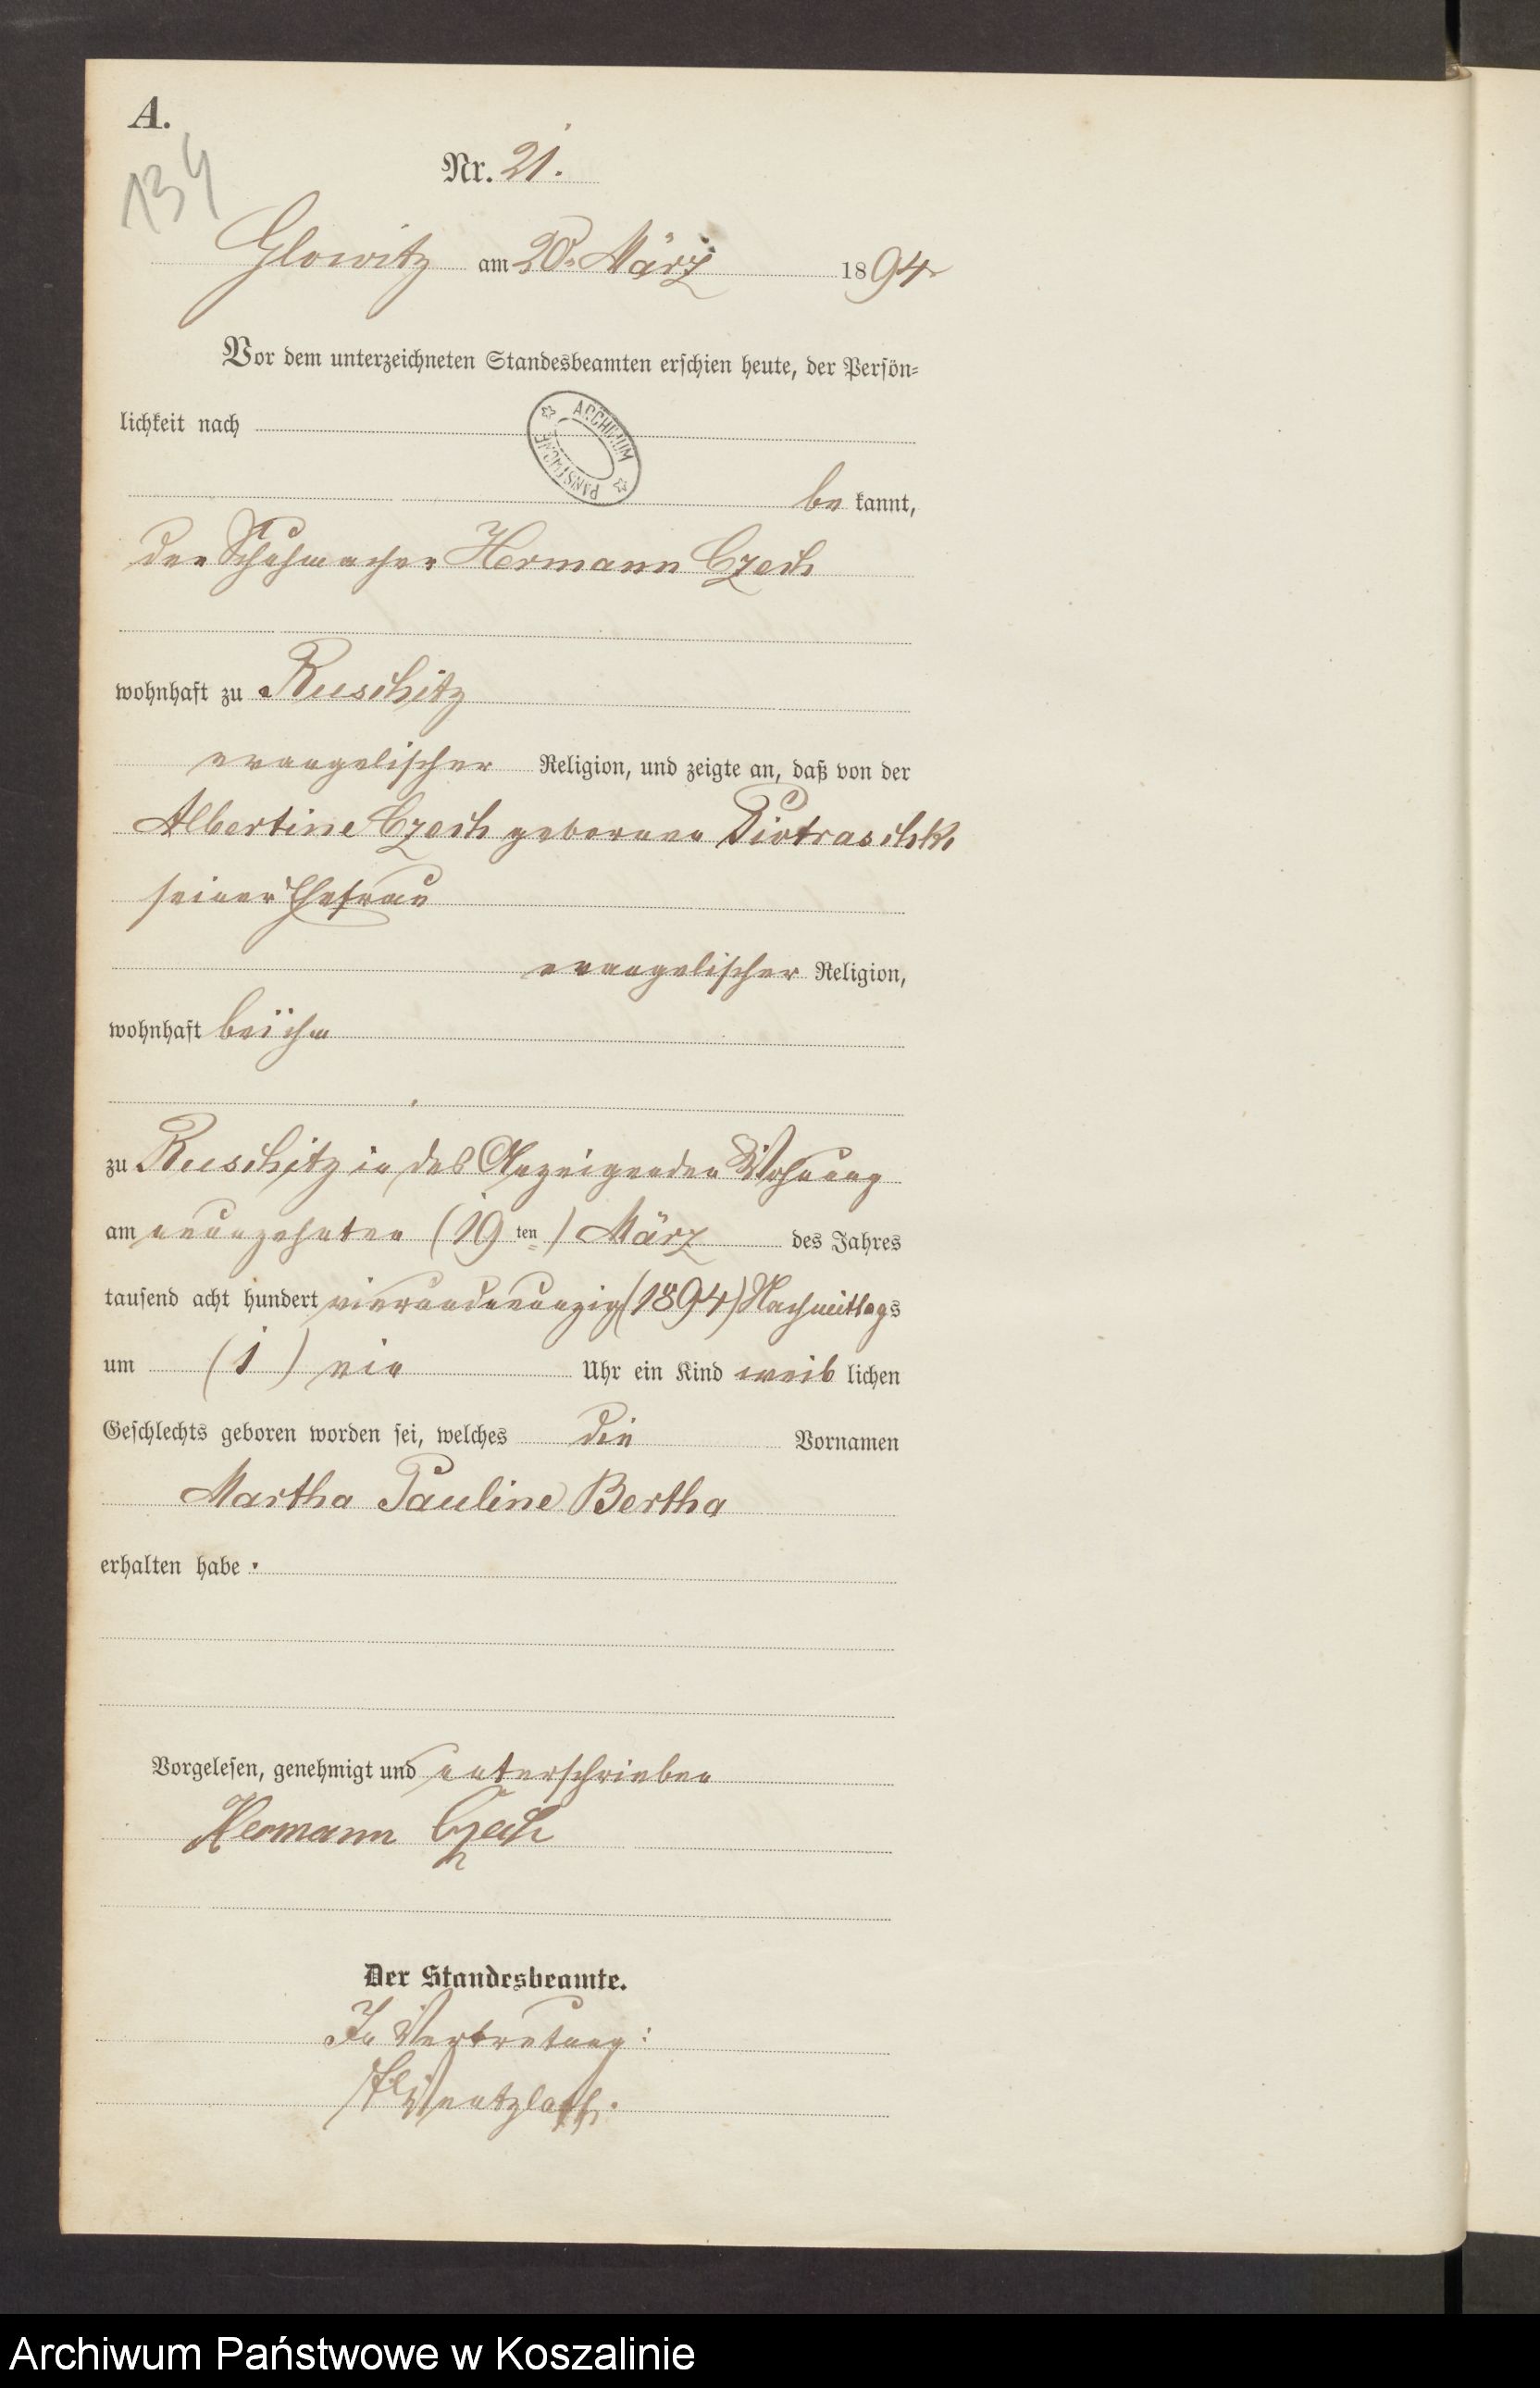 A.
134
Nr. 21.
Glowitz am 20. März 1894
Vor dem unterzeichneten Standesbeamten erschien heute, der Persön-
lichkeit nach
ARCHIWUM PAŃSTWOWE
be kannt,
der Schuhmacher Hermann Czech
wohnhaft zu Ruschitz
evangelischer Religion, und zeigte an, daß von der
Albertine Czech geborene Piotraschk
seiner Ehefrau
evangelischer Religion,
wohnhaft bei ihm
zu Ruschitz in des Anzeigenden Wohnung
am neunzehnten (19 ten) März des Jahres
tausend acht hundert vierundneunzig (1894) Nachmittags
um (1) ein Uhr ein Kind weib lichen
Geschlechts geboren worden sei, welches die Vornamen
Martha Pauline Bertha
erhalten habe.
Vorgelesen, genehmigt und unterschrieben
Hermann Czech
Der Standesbeamte.
In Vertretung:
Wentzlaff.
Archiwum Państwowe w Koszalinie